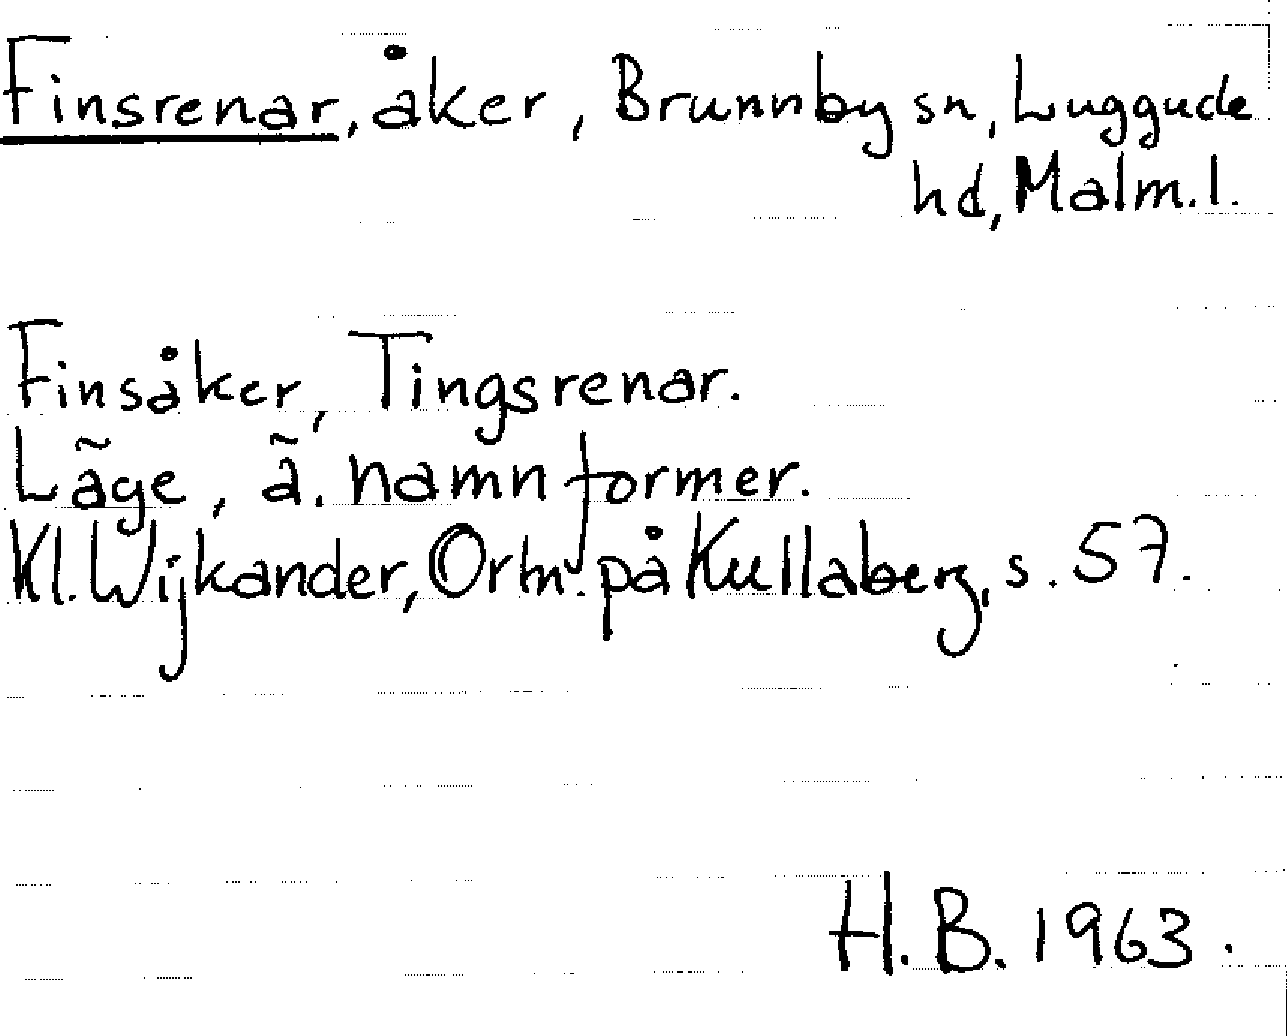 Finsrenar, åker, Brunnby sn, Luggude
hd, Malm.l.
Finsåker, Tingsrenar.
Läge, ä. namnformer.
Kl. Wijkander, Ortn. på Kullaberg, s. 57.
H.B. 1963.